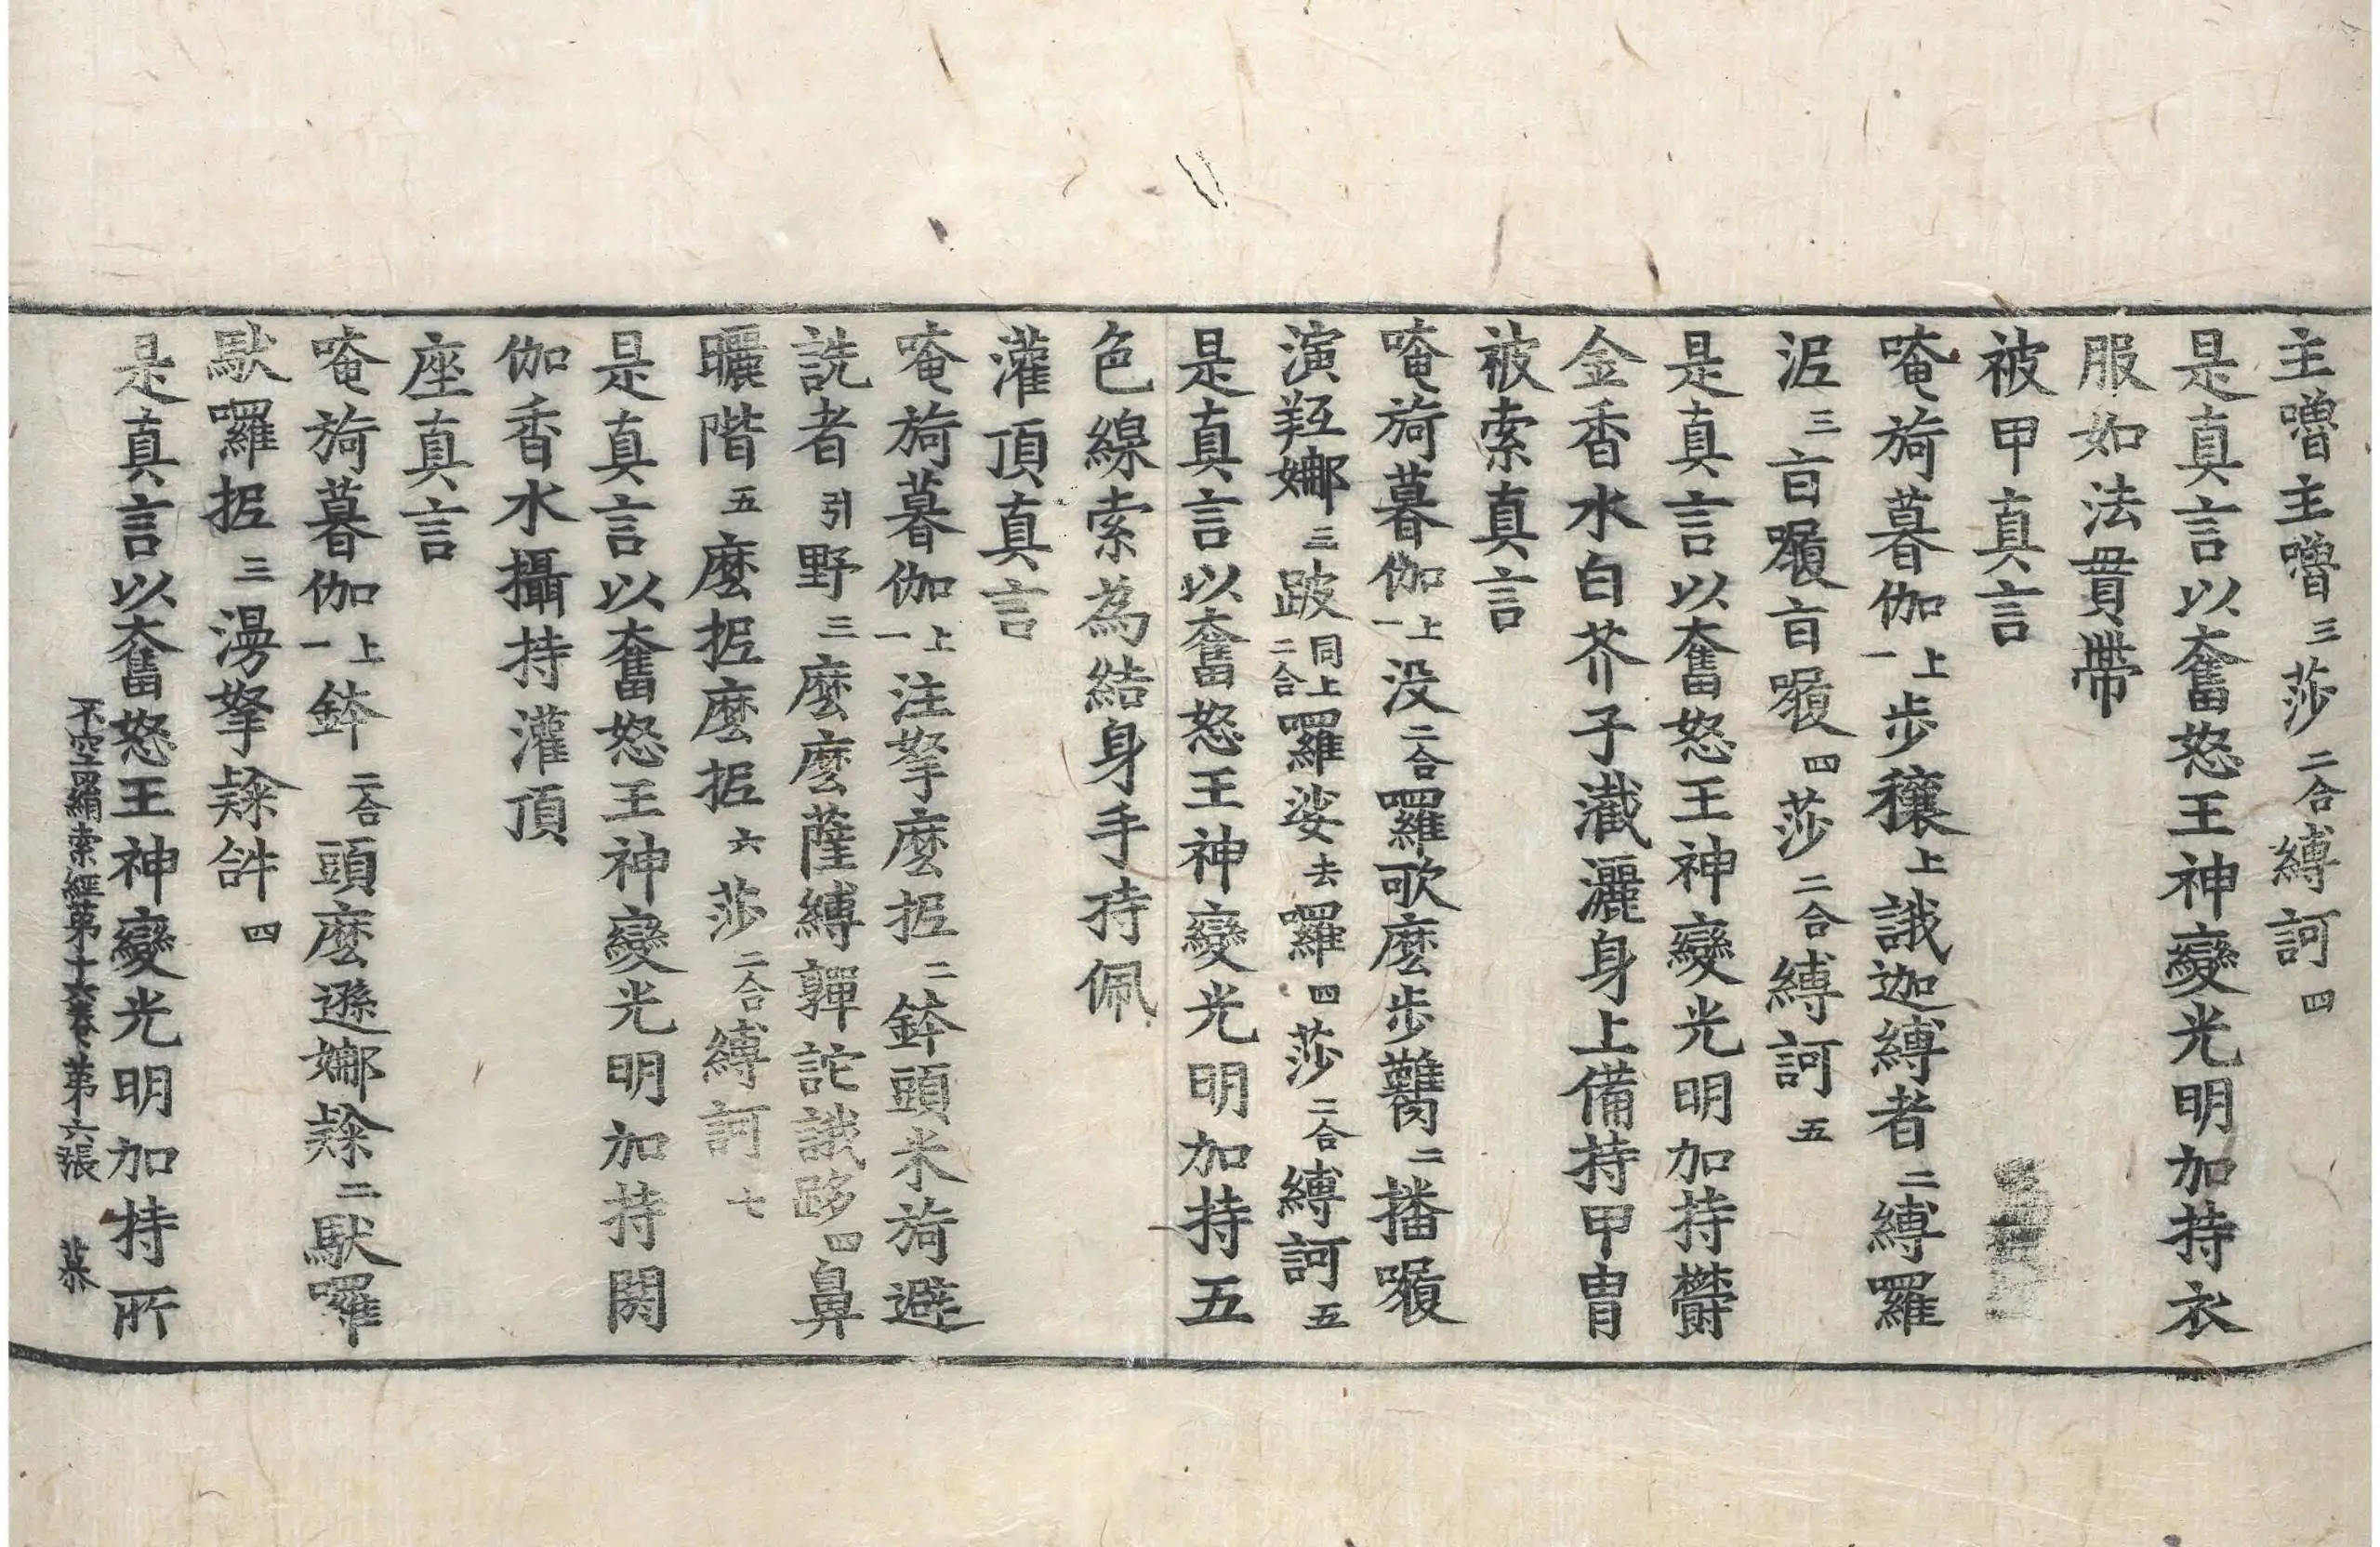 主噜主噜三莎二合縛訶四
是真言以奮怒王神變光明加持衣
服如法貫帶
被甲真言
唵旖暮伽上一步穰上誐迦縛者二縛羅
泥三亩㘑亩㘑四莎二合縛訶五
是真言以奮怒王神變光明加持欝
金香水白芥子濈灑身上備持甲冑
被索真言
唵旖暮伽上一没二合囉歌麼步㘓二播㘑
演羟娜三跛同上二合囉娑去囉四莎二合縛訶五
是真言以奮怒王神變光明加持五
色線索為結身手持佩
灌頂真言
唵旖暮伽上一注拏麼抳二鉢頭米旖避
詵者引野三麼麼薩縛嚲詑誐跢四鼻
曬階五麼抳麼抳六莎二合縛訶七
是真言以奮怒王神變光明加持閼
伽香水攝持灌頂
座真言
唵旖暮伽上一鉢二合頭麼遜娜隸二馱囉
馱囉抳三漫拏隸𤙖四
是真言以奮怒王神變光明加持所
不空羂索經第十六卷 第六張 恭